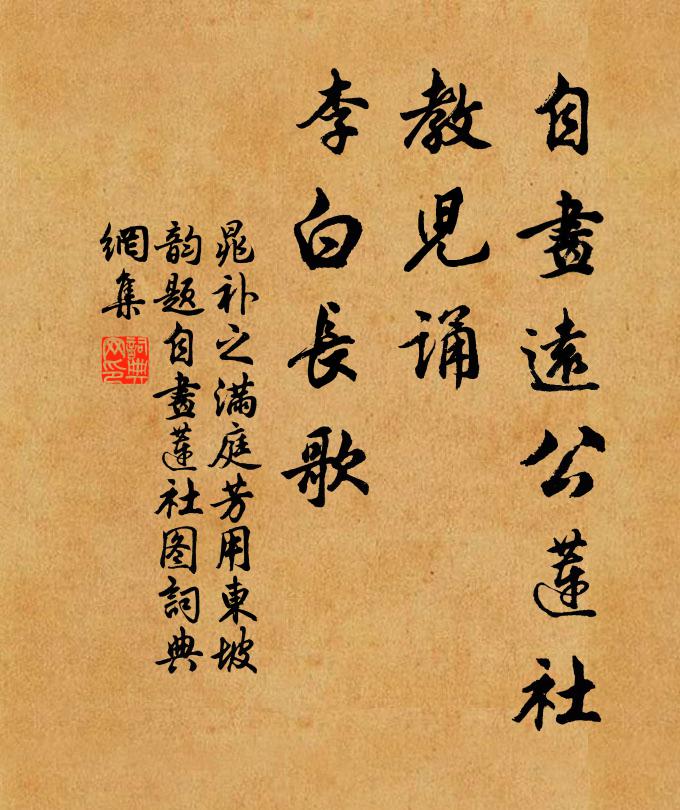 自畫遠公蓮社
教児誦
李白長歌
晁补之满庭芳用東坡
韵题自畫莲社图詞典
網集
詞典
网印